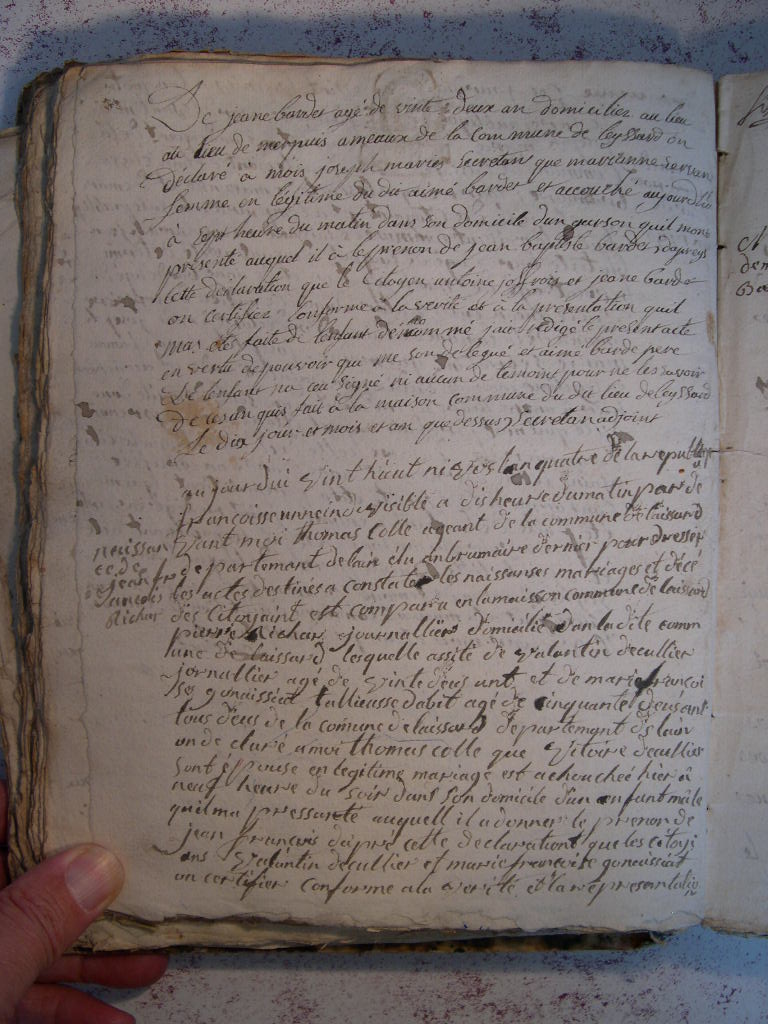 De jeane barder agé de vinte deux an domiciliez au lieu
au lieu de merpuis ameaux de la commune de leyssard on
declaré a mois joseph marie Secretan que marianne
femme en légitime du du aimé barder et accouché aujourdui
à sept heure du matin dans son domicile dun garson quil mont
présenté auquel il à le prenon de jean baptiste barder dapreys
cette declaration que le Citoyen antoine joffrois et jeane barder
on certifiez conforme à la verité et à la presentation quil
mas etes faite de lenfant denommé jair redigé le present acte
en vertu de pouvoir qui me son delegué et aimé barde pere
De lenfant na eu signé ni aucun de temoint pour ne les savoir
De ce san quis fait à la maison commune du dit lieu de leyssard
Le dix jour et mois et an que dessus Secretan adjoint
aujourdui vint huit nivos lan quatre de la republi
françoisse unne indivisible a dis heure du matin par de
vant moi thomas Colle ageant de la commune de laissard
de partement de lain élu an brumaire dernier pour dresser
les actes destinés a constater les naissanses mariages et décé
des Citoyaint est compara en la maisson commune de laissard
pierre Richar journallier domicilié dan la dite comm
une de laissard lesquelle assité de valantin decullier
jornallier agé de vinte deus ant et de marie françoi
se gonaissiat tallieusse dabit agé de cinquante deus ant
tous deus de la comune de laissard departement dis lain
on de claré a moi thomas Colle que vitoire decullier
sont épouse en legitime mariage est achouchéé hier à
neuf heure du soir dans son domicile dun enfant mâle
quil ma pressanté auquell il a donner le prenon de
jean françois dapré cette declarationt que les citoyi
ans valantin decullier et marie françoise gonaissiat
on certifier conforme a la verité et la representatio
naissan
ce de
jean fr
ancois
Richar